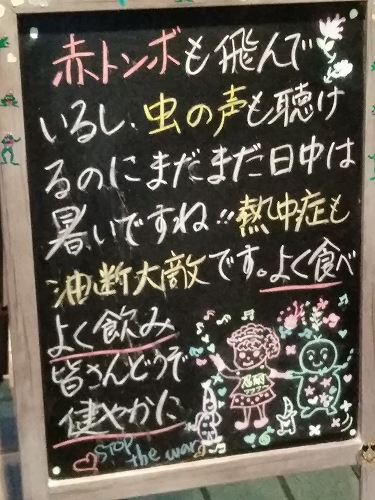 赤トンボも飛んで
いるし、虫の声も聴け
るのにまだまだ日中は
暑いですね!!熱中症も
油断大敵です。よく食べ
よく飲み
皆さんどうぞ
健やかに
stop
the war